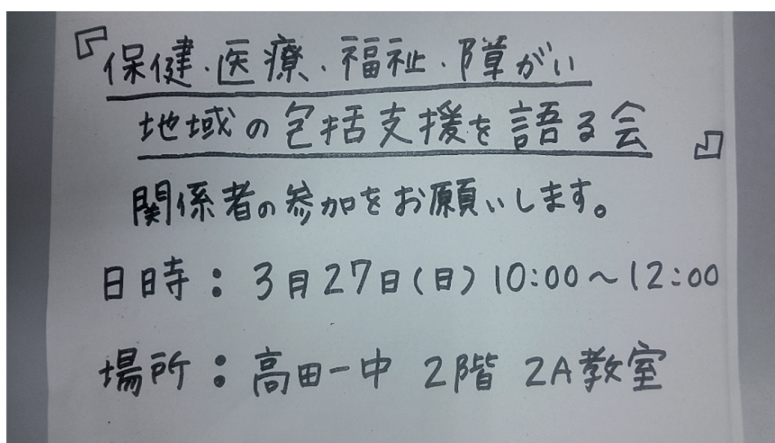 『保健・医療・福祉・障がい
地域の包括支援を語る会』
関係者の参加をお願いします。
日時：3月27日(日)10:00～12:00
場所：高田一中 2階 2A教室